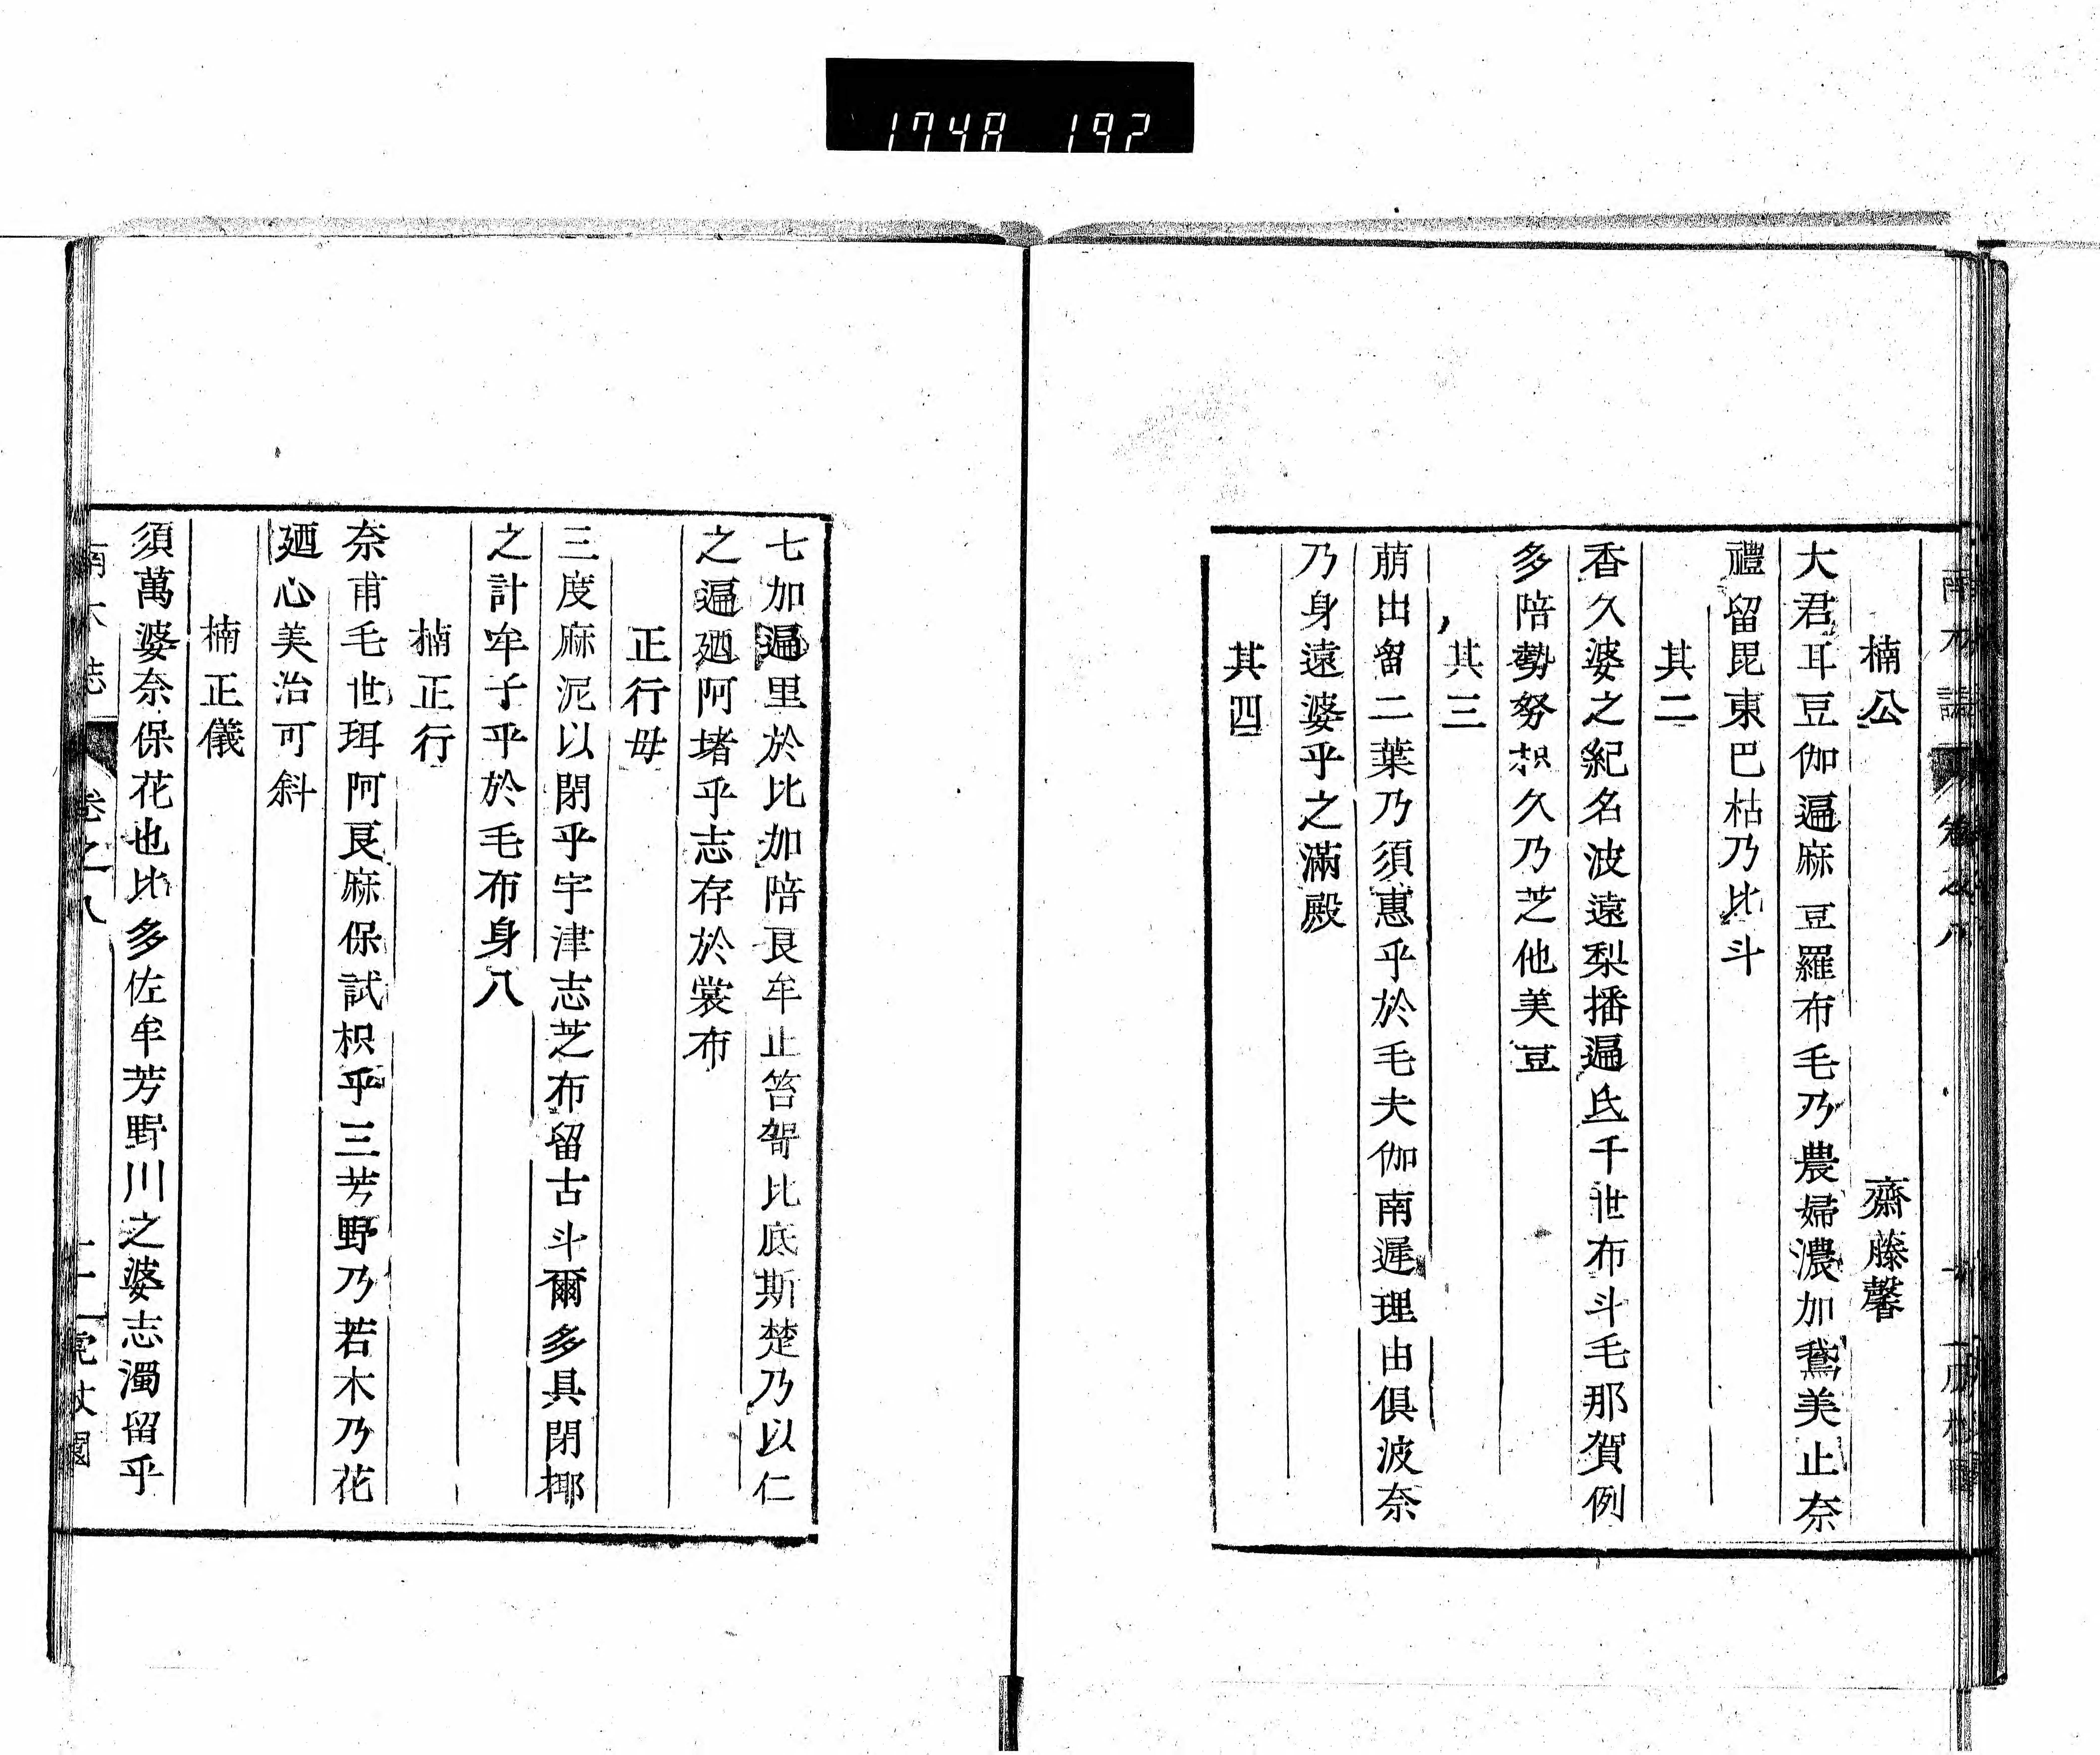 1748 192
楠公 齋藤馨
大君耳豆伽遍麻豆羅布毛乃農婦濃加鵞美止奈
禮留毘東巴枯乃比斗
其二
香久婆之紀名波遠梨播遍氐千世布斗毛那賀例
多陪勢努枳久乃芝他美豆
其三
萠出留二葉乃須惠乎於毛夫伽南遲理由俱波奈
乃身遠婆乎之滿殿
其四
七加遍里於比加陪良牟止答帤比底斯楚乃以仁
之遍廼阿堵乎志存於裳布
正行母
三度麻泥以閉乎宇津志芝布留古斗爾多具閉揶
之計牟子乎於毛布身八
楠正行
奈甫毛世珥阿良麻保試枳乎三芳野乃若木乃花
廼心美治可斜
楠正儀
須萬婆奈保花也比多佐牟芳野川之婆志濁留乎
卷之八